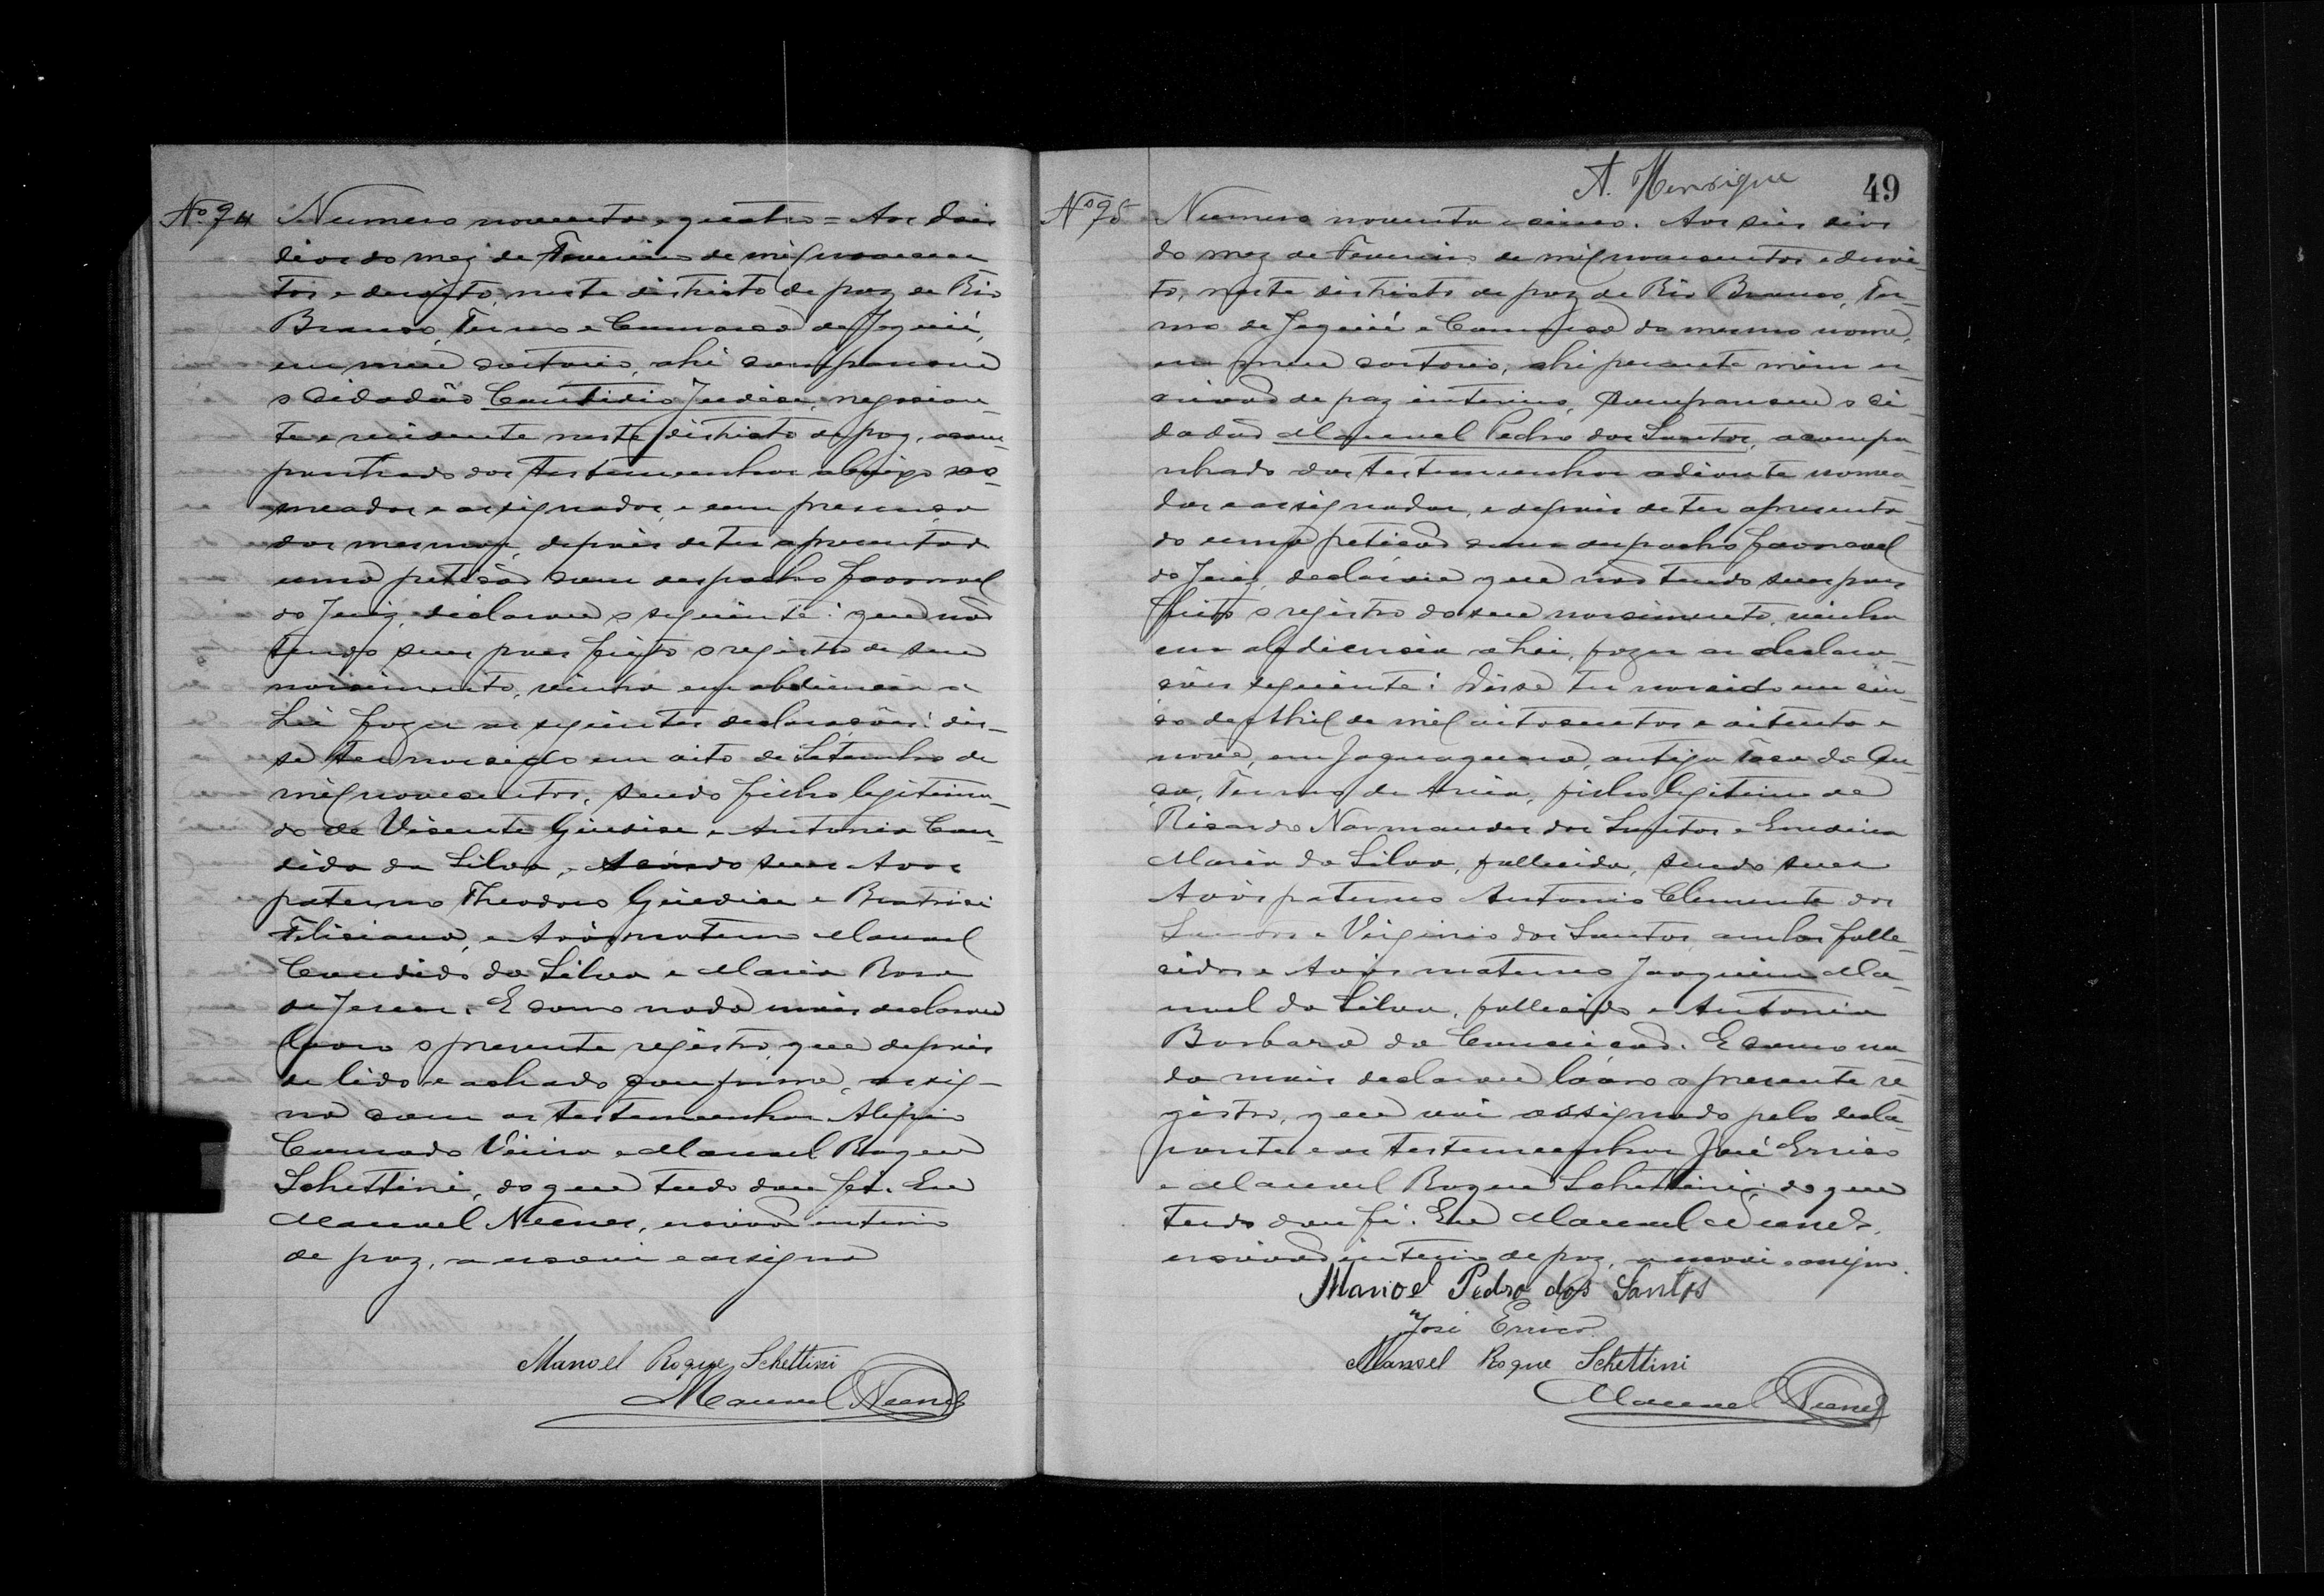 Nº 94 Numero noventa e quatro = Aos dois
dias do mez de Fevereiro de mil novecen
tos e dezoito, neste districto de paz de Rio
Branco, Termo e Comarca de Jequié,
em meu cartorio, ahi compareceu
o cidadão Cantidio Judice, negocian-
te e residente neste districto de paz, acom
panhado das testemunhas abaixo no-
meadas e assignadas, e em presença
das mesmas, depois de ter apresentado
uma petição com despacho favoravel
do Juiz, declarou o seguinte: que não
tendo seus paes feito o registro de seu
nascimento, vinha em obediencia a
Lei fazer as seguintes declarações: dis-
se ter nascido em oito de Setembro de
mil novecentos, sendo filho legitima-
do de Vicente Giudice e Antonia Can
dida da Silva, sendo seus Avós
paterno Theodoro Giudice e Beatrice
Feliciana, e Avós materno Manoel
Candido da Silva e Maria Rosa
de Jesus. E como nada mais declarou
lavro o presente registro, que depois
de lido e achado conforme, assig-
na com as testemunhas Alipio
Camado Vieira e Manoel Roque
Schettini, do que tudo dou fé. Eu
Manoel Nunes, escrivão interino
de paz, a escrevi e assigno
Manoel Roque Schettini
Manoel Nunes
A. Henrique 49
Nº 95 Numero noventa e cinco. Aos seis dias
do mez de Fevereiro de mil novecentos e dezoi-
to, neste districto de paz de Rio Branco, Ter-
mo de Jequié e Comarca do mesmo nome,
em meu cartorio, ahi perante mim es-
crivão de paz interino, compareceu o ci-
dadão Manoel Pedro dos Santos, acompa
nhado das testemunhas adiante nomea-
das e assignadas, e depois de ter apresenta-
do uma petição com despacho favoravel
do Juiz, declarou que não tendo seus paes
feito o registro do seu nascimento, vinha
em obediencia a Lei, fazer as declara-
ções seguinte: Disse ter nascido em cin-
co de Abril de mil oitocentos e oitenta e
nove, em Jaguaquara, antiga Toca da On-
ça, Termo de Areia, filho legitimo de
Ricardo Normandes dos Santos e
Maria da Silva, fallecida, sendo seus
Avós paternos Antonio Clemente dos
Santos e Virginia dos Santos, ambos falle-
cidos e Avós maternos Joaquim Ma-
noel da Silva, fallecido e Antonia
Barbara da Conceição. E como na-
da mais declarou lavro o presente re-
gistro, que vai assignado pelo decla-
rante e as testemunhas José Errico
e Manoel Roque Schettini, do que
tudo dou fé. Eu Manoel Nunes,
escrivão interino de paz, a escrevi e assigno.
Manoel Pedro dos Santos
José Errico
Manoel Roque Schettini
Manoel Nunes